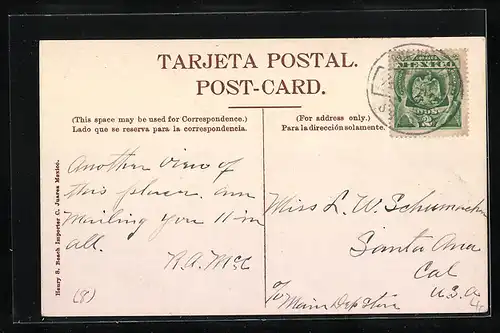 TARJETA POSTAL.
POST-CARD.
(This space may be used for Correspondence.)
Lado que se reserva para la correspondencia.
(For address only.)
Para la dirección solamente.
MEXICO
2
Another view of
this place. am
mailing you 11 in
all.
R.A. McC
(8)
Miss L. W. Schumacher
Santa Ana
Cal
U.S.A.
c/o
Main Dep Store
Henry S. Beach Importer C. Juarez Mexico.